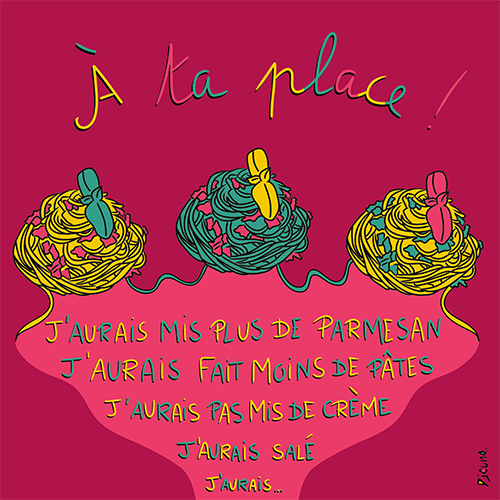 À ta place !
J'AURAIS MIS PLUS DE PARMESAN
J'AURAIS FAIT MOINS DE PÂTES
J'AURAIS PAS MIS DE CRÈME
J'AURAIS SALÉ
J'AURAIS...